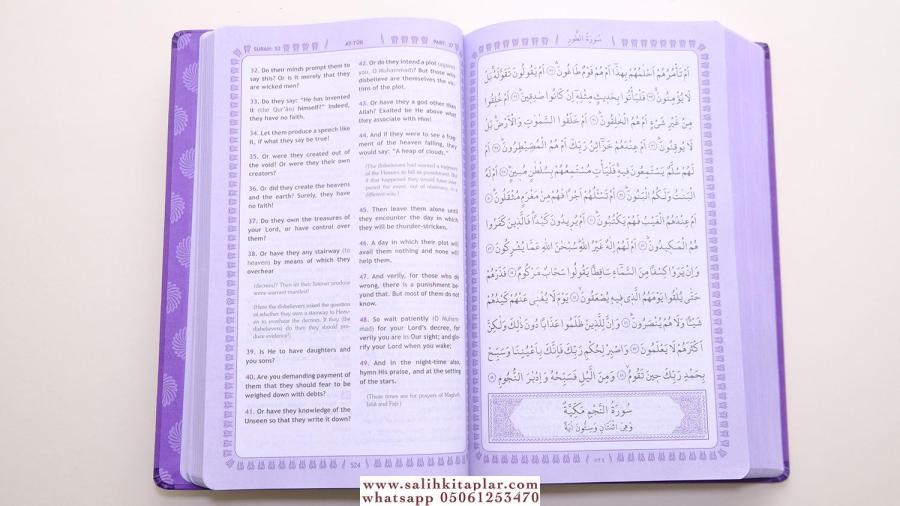 SURAH: 52
AT-TÛR
PART: 27
32. Do their minds prompt them to
say this? Or is it merely that they
are wicked men?
33. Do they say: "He has invented
it (the Qur'ân) himself?" Indeed,
they have no faith.
34. Let them produce a speech like
it, if what they say be true!
35. Or were they created out of
the void! Or were they their own
creators?
36. Or did they create the heavens
and the earth? Surely, they have
no faith!
37. Do they own the treasures of
your Lord, or have control over
them?
38. Or have they any stairway (to
heaven) by means of which they
overhear
(decrees)? Then let their listener produce
some warrant manifest!
(Here the disbelievers asked the question
of whether they own a stairway to Heav-
en to overhear the decrees. If they (the
disbelievers) do then they should pro-
duce evidence!)
39. Is He to have daughters and
you sons?
40. Are you demanding payment of
them that they should fear to be
weighed down with debts?
41. Or have they knowledge of the
Unseen so that they write it down?
42. Or do they intend a plot (against
you, O Muhammad)? But those who
disbelieve are themselves the vic-
tims of the plot.
43. Or have they a god other than
Allah? Exalted be He above what
they associate with Him!
44. And if they were to see a frag-
ment of the heaven falling, they
would say: "A heap of clouds."
(The disbelievers had wanted a fragment
of the Heaven to fall as punishment. But
if that happened they would have inter-
preted the event, out of obstinacy, in a
different way.)
45. Then leave them alone until
they encounter the day in which
they will be thunder-stricken.
46. A day in which their plot will
avail them nothing and none will
help them.
47. And verily, for those who do
wrong, there is a punishment be-
yond that. But most of them do not
know.
48. So wait patiently (O Muham-
mad) for your Lord's decree, for
verily you are in Our sight; and glo-
rify your Lord when you wake;
49. And in the night-time also,
hymn His praise, and at the setting
of the stars.
(These times are for prayers of Maghrib,
Ishâ and Fajr.)
524
سُورَةُ الطُّورِ
اَمْ تَأْمُرُهُمْ اَحْلَامُهُمْ بِهٰذَٓا اَمْ هُمْ قَوْمٌ طَاغُونَ ﴿٣٢﴾ اَمْ يَقُولُونَ تَقَوَّلَهُ بَلْ
لَا يُؤْمِنُونَ ﴿٣٣﴾ فَلْيَأْتُوا بِحَدِيثٍ مِثْلِهِٓ اِنْ كَانُوا صَادِقِينَ ﴿٣٤﴾ اَمْ خُلِقُوا
مِنْ غَيْرِ شَيْءٍ اَمْ هُمُ الْخَالِقُونَ ﴿٣٥﴾ اَمْ خَلَقُوا السَّمٰوَاتِ وَالْاَرْضَ بَلْ
لَا يُوقِنُونَ ﴿٣٦﴾ اَمْ عِنْدَهُمْ خَزَٓائِنُ رَبِّكَ اَمْ هُمُ الْمُصَيْطِرُونَ ﴿٣٧﴾ اَمْ
لَهُمْ سُلَّمٌ يَسْتَمِعُونَ فِيهِ فَلْيَأْتِ مُسْتَمِعُهُمْ بِسُلْطَانٍ مُبِينٍ ﴿٣٨﴾ اَمْ لَهُ
الْبَنَاتُ وَلَكُمُ الْبَنُونَ ﴿٣٩﴾ اَمْ تَسْـَٔلُهُمْ اَجْرًا فَهُمْ مِنْ مَغْرَمٍ مُثْقَلُونَ ﴿٤٠﴾
اَمْ عِنْدَهُمُ الْغَيْبُ فَهُمْ يَكْتُبُونَ ﴿٤١﴾ اَمْ يُرِيدُونَ كَيْدًا فَالَّذِينَ كَفَرُوا
هُمُ الْمَكِيدُونَ ﴿٤٢﴾ اَمْ لَهُمْ اِلٰهٌ غَيْرُ اللّٰهِ سُبْحَانَ اللّٰهِ عَمَّا يُشْرِكُونَ ﴿٤٣﴾
وَاِنْ يَرَوْا كِسْفًا مِنَ السَّمَٓاءِ سَاقِطًا يَقُولُوا سَحَابٌ مَرْكُومٌ ﴿٤٤﴾ فَذَرْهُمْ
حَتّٰى يُلَاقُوا يَوْمَهُمُ الَّذِي فِيهِ يُصْعَقُونَ ﴿٤٥﴾ يَوْمَ لَا يُغْنِي عَنْهُمْ كَيْدُهُمْ
شَيْـًٔا وَلَا هُمْ يُنْصَرُونَ ﴿٤٦﴾ وَاِنَّ لِلَّذِينَ ظَلَمُوا عَذَابًا دُونَ ذٰلِكَ وَلٰكِنَّ
اَكْثَرَهُمْ لَا يَعْلَمُونَ ﴿٤٧﴾ وَاصْبِرْ لِحُكْمِ رَبِّكَ فَاِنَّكَ بِاَعْيُنِنَا وَسَبِّحْ
بِحَمْدِ رَبِّكَ حِينَ تَقُومُ ﴿٤٨﴾ وَمِنَ الَّيْلِ فَسَبِّحْهُ وَاِدْبَارَ النُّجُومِ ﴿٤٩﴾
سُورَةُ النَّجْمِ مَكِّيَّةٌ
وَهِيَ اثْنَتَانِ وَسِتُّونَ اٰيَةً
٥٢٤
www.salihkitaplar.com
whatsapp 05061253470